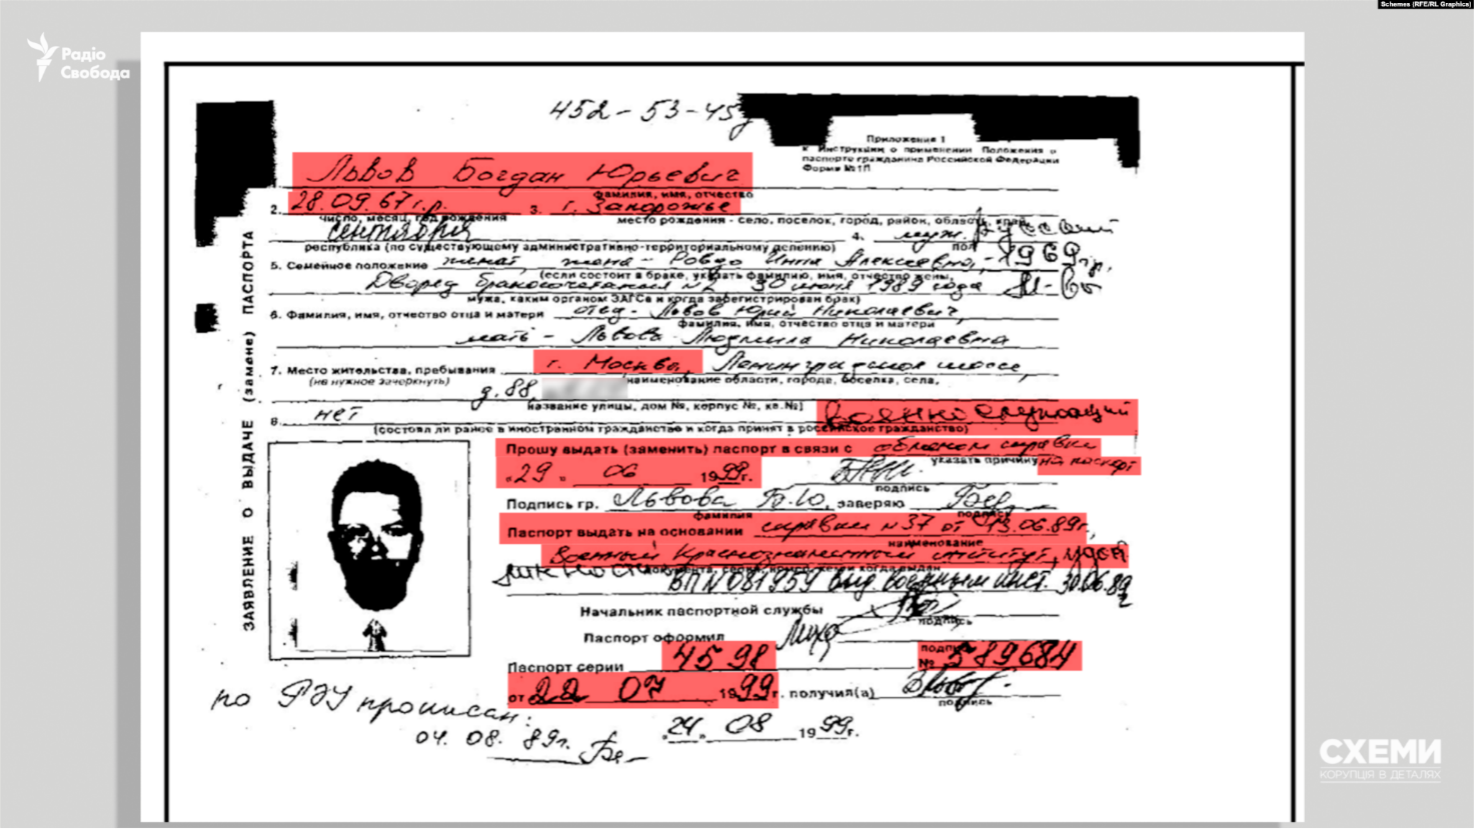 Schemes (RFE/RL Graphics)
Радіо
Свобода
452-53-45
Приложение 1
к Инструкции о применении Положения о
паспорте гражданина Российской Федерации
Форма №1П
ЗАЯВЛЕНИЕ О ВЫДАЧЕ (замене) ПАСПОРТА
Львов Богдан Юрьевич
фамилия, имя, отчество
2. 28.09.67 г.р. 3. г. Запорожье
число, месяц, год рождения место рождения - село, поселок, город, район, область, край,
сентября 4. муж. русский
республика (по существующему административно-территориальному делению) пол
5. Семейное положение женат, жена - Инна Алексеевна, - 1969 г.р.,
(если состоит в браке, указать фамилию, имя, отчество жены,
Дворец бракосочетания №2 30 июня 1989 года
мужа, каким органом ЗАГСа и когда зарегистрирован брак)
6. Фамилия, имя, отчество отца и матери отец - Львов Юрий Николаевич,
фамилия, имя, отчество отца и матери
мать - Львова Людмила Николаевна
7. Место жительства, пребывания г. Москва, Ленинградское шоссе,
(не нужное зачеркнуть) наименование области, города, поселка, села,
д.88,
название улицы, дом №, корпус №, кв.№)
8. нет военнослужащий
(состоял ли ранее в иностранном гражданстве и когда принят в российское гражданство)
Прошу выдать (заменить) паспорт в связи с обменом справки
указать причину на паспорт
"29" 06 1999г.
подпись
Подпись гр. Львова Б.Ю. заверяю
фамилия подпись
Паспорт выдать на основании справки №37 от 13.06.89г.,
наименование
Военный Краснознаменный институт, удост.
документа, серия, номер, кем и когда выдан
личности ВПN081959 выд. военным инст. 30.06.89г
Начальник паспортной службы
подпись
Паспорт оформил
подпись
Паспорт серии 45 98 № 589684
от 22 07 1999г. получил(а)
подпись
"24" 08 1999г.
по РЭУ прописан:
04. 08. 89г.
СХЕМИ
КОРУПЦІЯ В ДЕТАЛЯХ